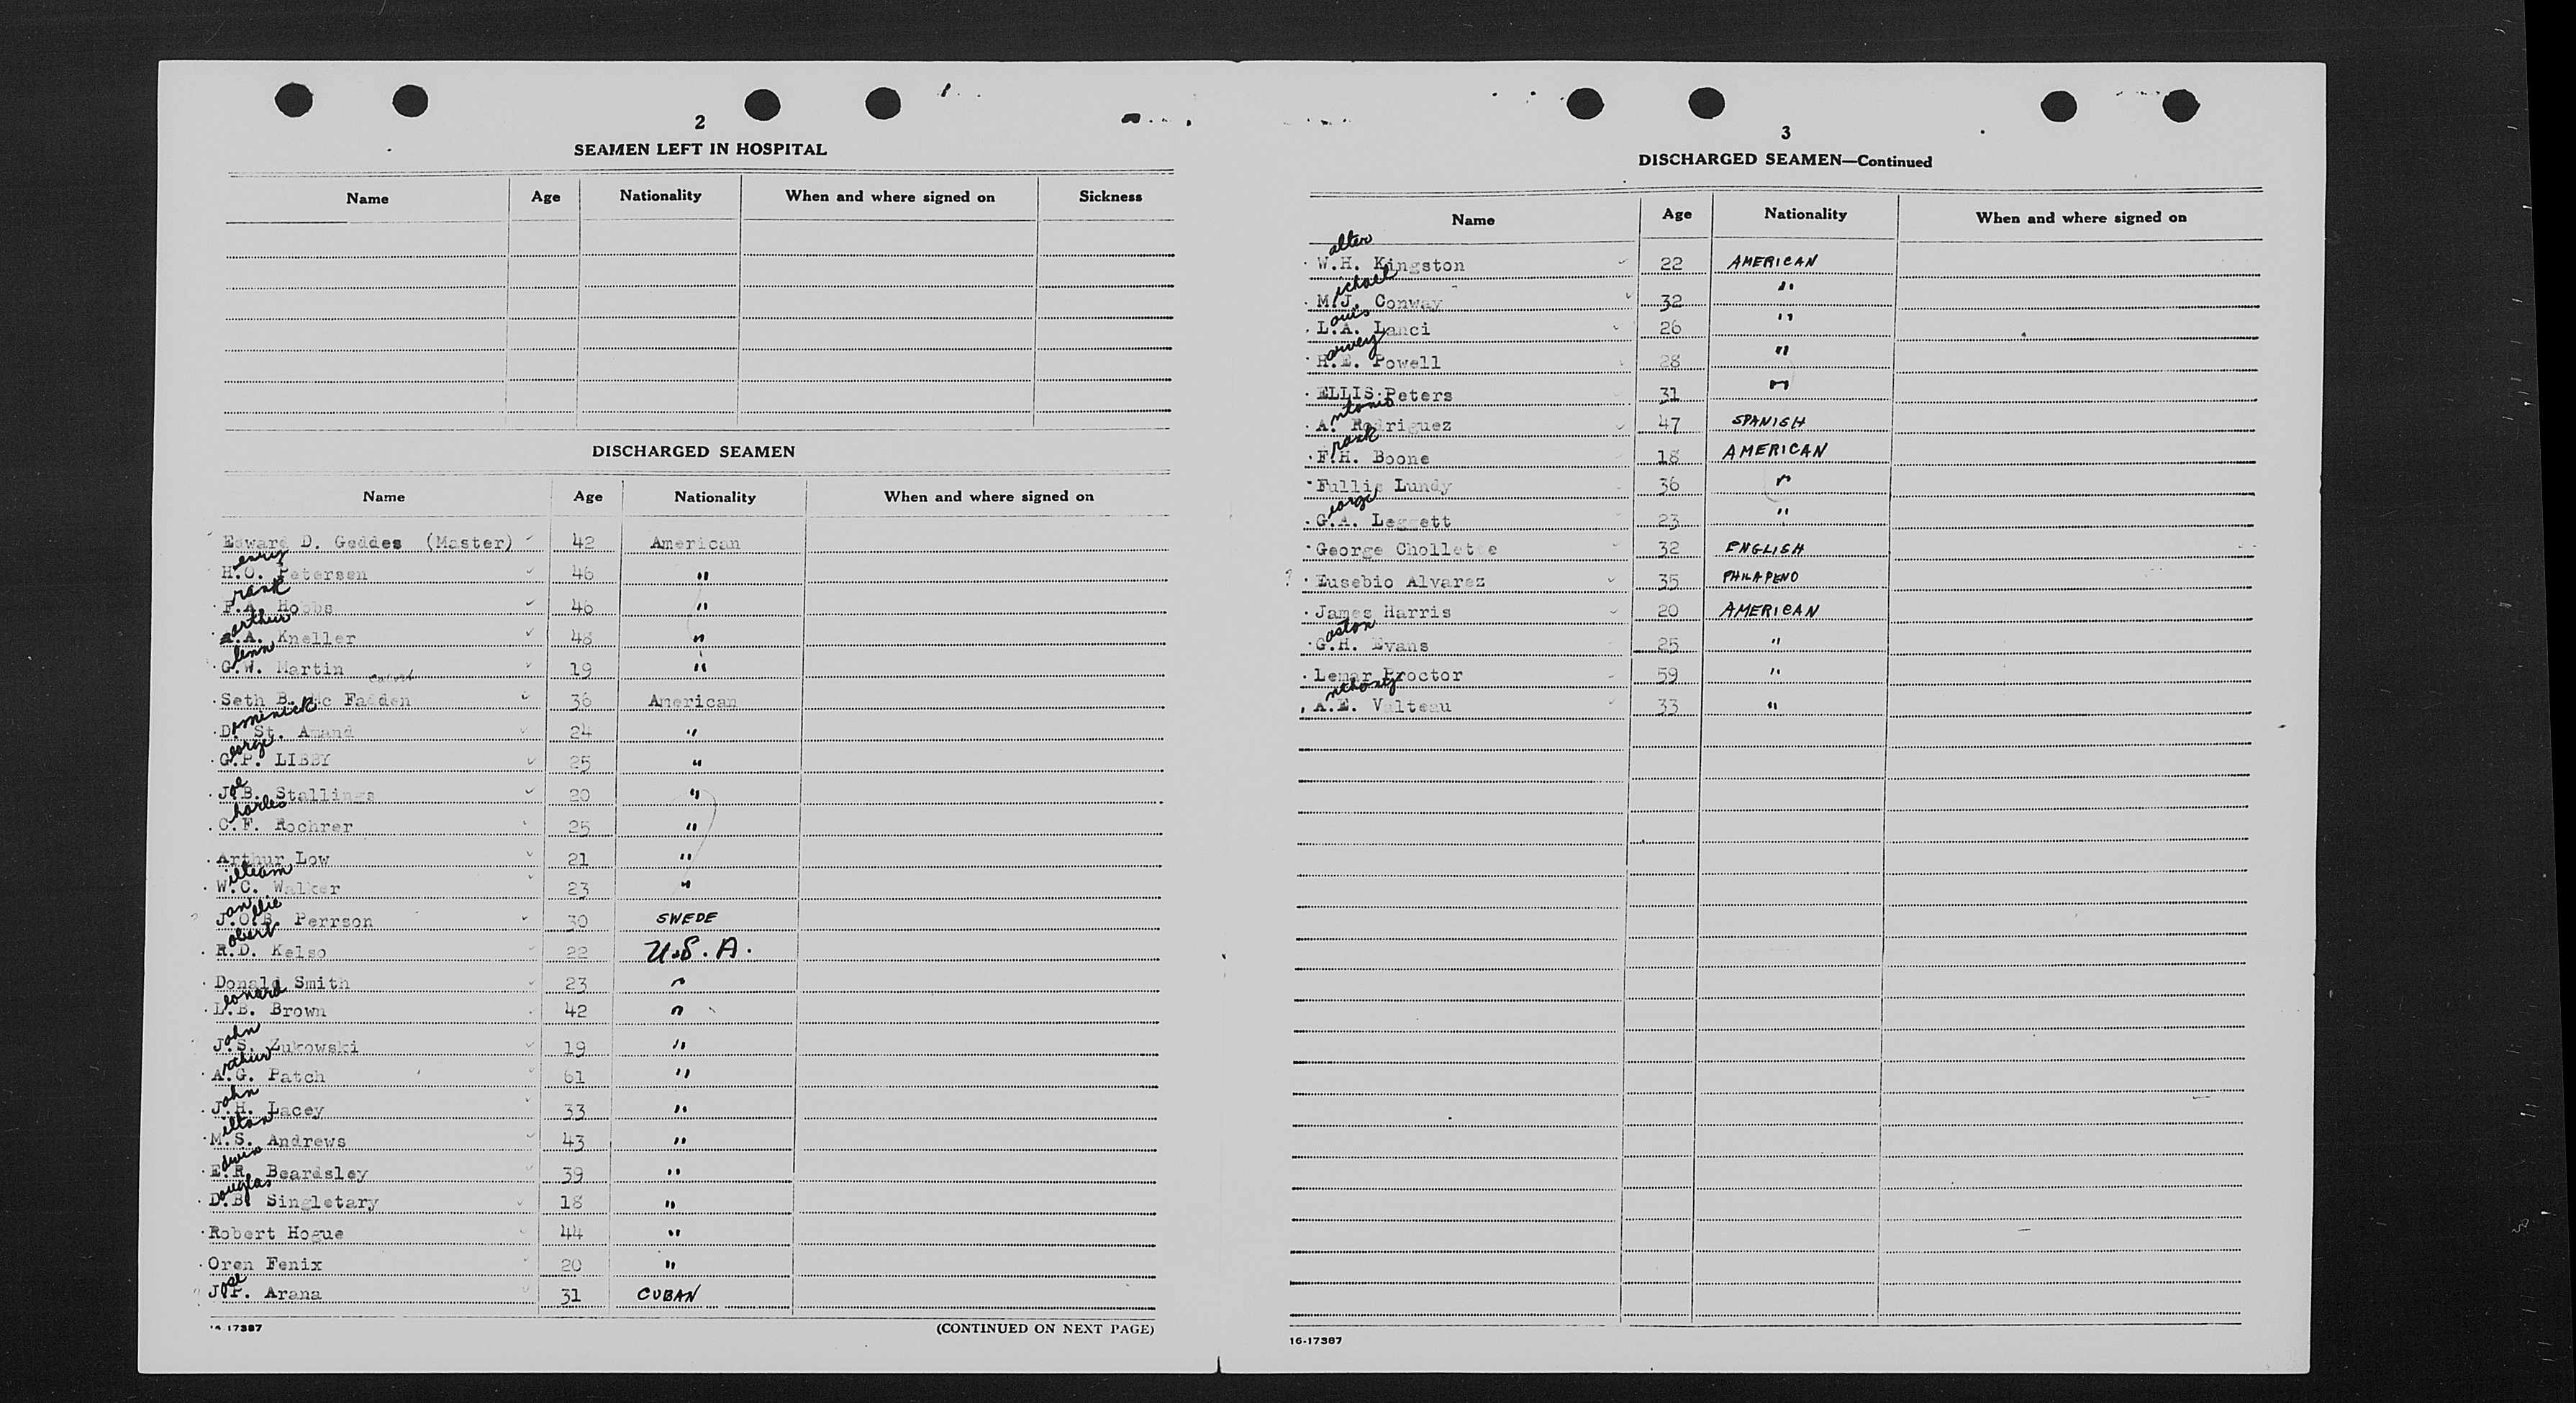 2
SEAMEN LEFT IN HOSPITAL
Name Age Nationality When and where signed on Sickness
DISCHARGED SEAMEN
Name Age Nationality When and where signed on
Edward D. Geddes (Master) 42 American
enry
H.O. Petersen 46 "
rank
F.A. Hobbs 46 "
arthur
A.A. Kneller 48 "
lenn
G.W. Martin 19 "
Seth B. Mc Fadden 36 American
ominick
D. St. Amand 24 "
eorge
G.P. LIBBY 25 "
oe
J.B. Stallings 20 "
harles
C.F. Rochrer 25 "
Arthur Low 21 "
illiam
W.C. Walker 23 "
an llie
J.O.B. Perrson 30 SWEDE
obert
R.D. Kelso 22 U.S.A.
Donald Smith 23 "
eonard
L.B. Brown 42 "
ohn
J.S. Zukowski 19 "
rthur
A.G. Patch 61 "
ohn
J.H. Lacey 33 "
ilton
M.S. Andrews 43 "
dwin
E.R. Beardsley 39 "
ouglas
D.B. Singletary 18 "
Robert Hogue 44 "
Oren Fenix 20 "
ose
J.P. Arana 31 CUBAN
16-17387 (CONTINUED ON NEXT PAGE)
3
DISCHARGED SEAMEN—Continued
Name Age Nationality When and where signed on
alter
W.H. Kingston 22 AMERICAN
ichael
M.J. Conway 32 "
ouis
L.A. Lanci 26 "
arvey
H.E. Powell 28 "
ELLIS Peters 31 "
ntonio
A. Rodriguez 47 SPANISH
rank
F.H. Boone 18 AMERICAN
Fullis Lundy 36 "
eorge
G.A. Leggett 23 "
George Chollette 32 ENGLISH
? Eusebio Alvarez 35 PHILAPENO
James Harris 20 AMERICAN
aston
G.H. Evans 25 "
Lemar Proctor 59 "
nthony
A.E. Valteau 33 "
16-17387